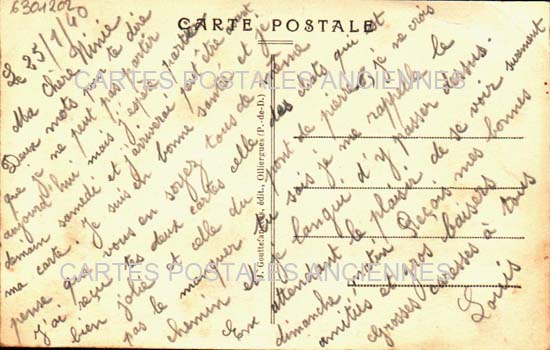 6301202
CARTE POSTALE
Le 25/1/40
Ma chère Ninie
Deux mots pour te dire
que je ne peut pas partir
aujourd'hui mais j'espère partir
demain samedi et j'arriverai peut être avant
ma carte. Je suis en bonne santé et je
pense que vous en soyez tous de même
J'ai reçu tes deux cartes celle des chats qui est
bien jolie et celle du pont de pierre je ne crois
pas le manquer tu sais je me rappelle le
chemin et la langue d'y passer dessus.
En attendant le plaisir de se voir surement
dimanche Reçois mes bonnes
amitiés et gros baisers
Grosses caresses à tous
Louis
J. Gouttefangeas, édit., Olliergues (P.-de-D.)
CARTES POSTALES ANCIENNES
CARTES POSTALES ANCIENNES